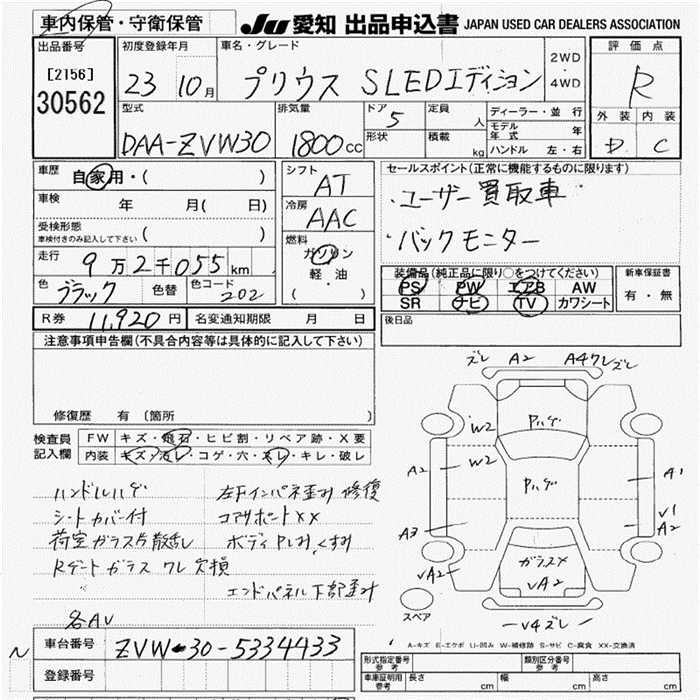 車内保管・守衛保管 JU 愛知 出品申込書 JAPAN USED CAR DEALERS ASSOCIATION
出品番号 [2156] 30562
初度登録年月 23 10月
車名・グレード プリウス SLEDエディション
2WD・4WD
評価点 R
外装 内装
D C
型式 DAA-ZVW30
排気量 1800cc
ドア 5
形状
定員 人
積載 kg
ディーラー・並行
モデル年式 年
ハンドル 左・右
車歴 自家用・( )
車検 年 月( 日)
受検形態 車検付きのみ記入して下さい ( )
走行 9万2千055km
色 ブラック 色替 色コード 202
シフト AT
冷房 AAC
燃料 ガソリン 軽・油 ( )
セールスポイント(正常に機能するものに限ります)
・ユーザー買取車
・バックモニター
装備品(純正品に限り○をつけてください)
PS PW エアB AW
SR ナビ TV カワシート
新車保証書 有・無
後日品
R券 11,920円 名変通知期限 月 日
注意事項申告欄(不具合内容等は具体的に記入して下さい)
修復歴 有 (箇所
検査員記入欄
FW キズ・飛石・ヒビ割・リペア跡・X要
内装 キズ・汚レ・コゲ・穴・スレ・キレ・破レ
ハンドルハゲ
シートカバー付
荷室ガラス片散乱
Rゲートガラス ワレ欠損
左Fインパネ歪み 修復
コアサポートXX
ボディPしみ、くすみ
エンドパネル下部歪み
各AU
ズレ A2 A4ワレ ズレ
W2 Pハゲ
W2
A2 Pハゲ A1
A3 V1 A2
VA2 ガラスX VA2
スペア
V4ズレ
A-キズ E-エクボ U-凹み W-補修跡 S-サビ C-腐食 XX-交換済
車台番号 ZVW-30-5334433
登録番号
形式指定番号 参考 類別区分番号 参考
車庫証明用 参考 長さ cm 幅 cm 高さ cm